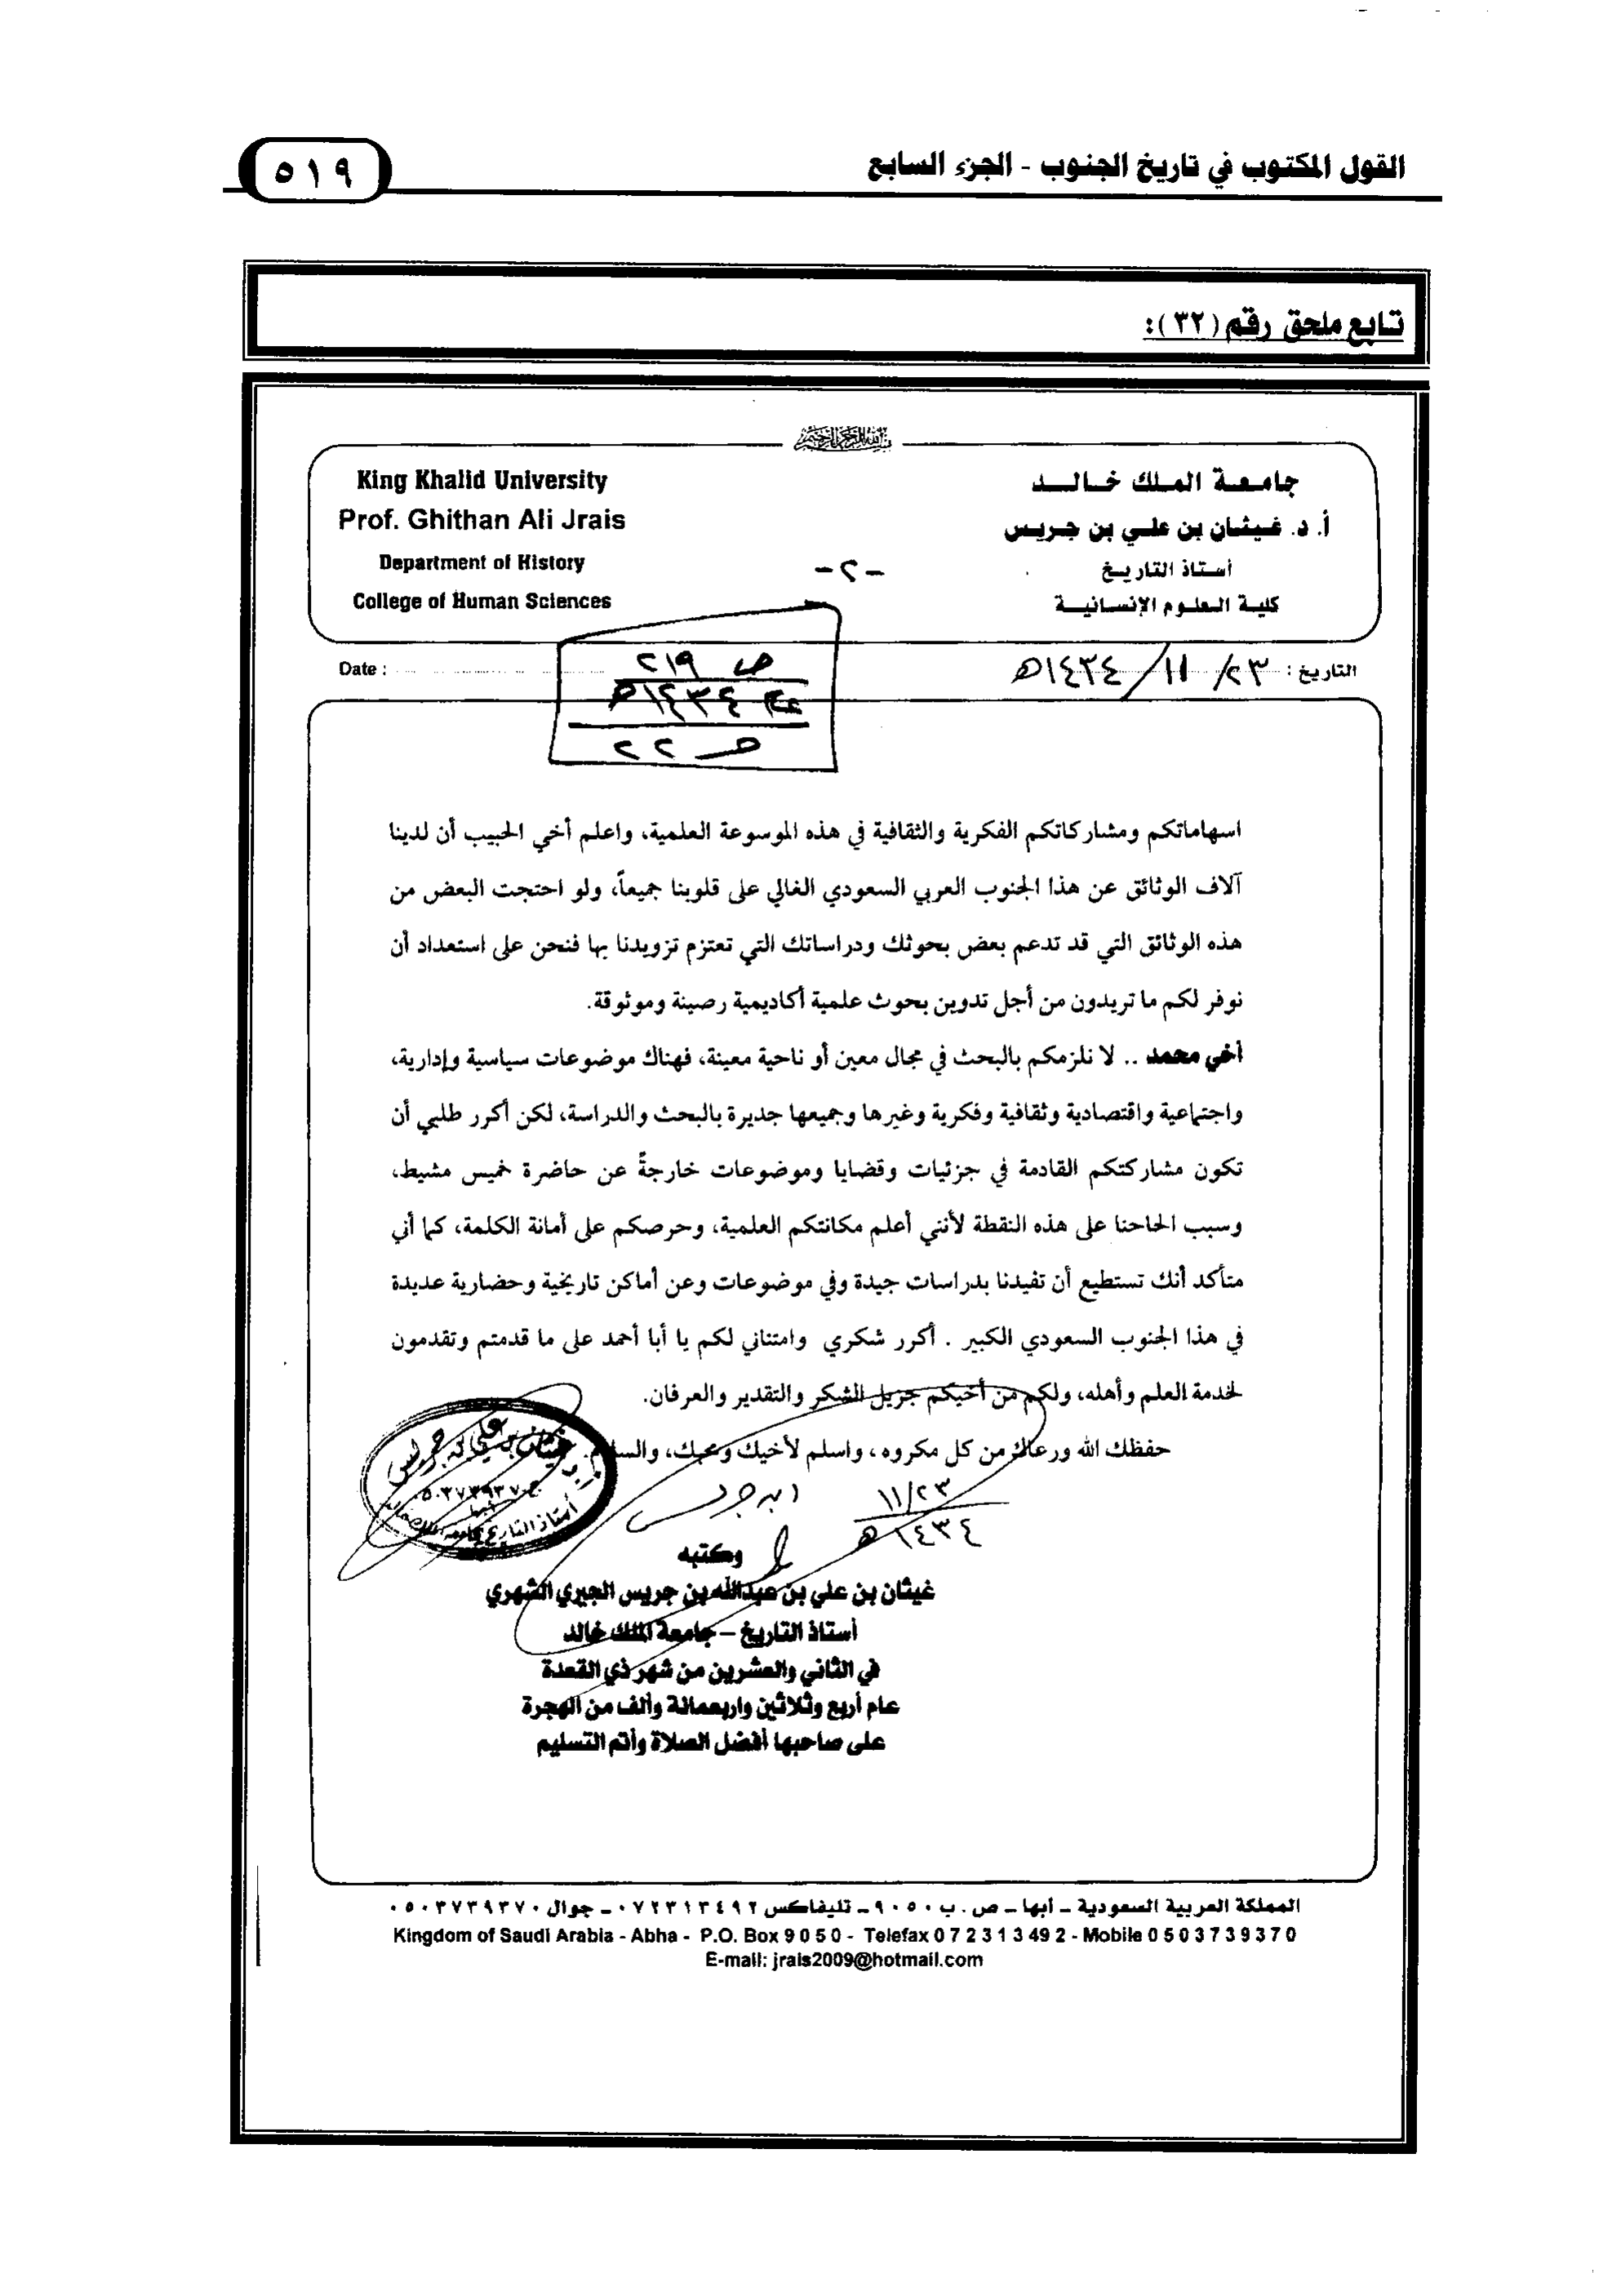 القول المكتوب في تاريخ الجنوب - الجزء السابع
٥١٩
تابع ملحق رقم (٣٢):
بسم الله الرحمن الرحيم
جامعة الملك خالد
أ. د. غيثان بن علي بن جريس
أستاذ التاريخ
كلية العلوم الإنسانية
-٢-
King Khalid University
Prof. Ghithan Ali Jrais
Department of History
College of Human Sciences
التاريخ : ٢٣/ ١١/ ١٤٣٤هـ
Date :
ص ٢١٩
١٤٣٤هـ
ص ٢٢
اسهاماتكم ومشاركاتكم الفكرية والثقافية في هذه الموسوعة العلمية، واعلم أخي الحبيب أن لدينا
آلاف الوثائق عن هذا الجنوب العربي السعودي الغالي على قلوبنا جميعاً، ولو احتجت البعض من
هذه الوثائق التي قد تدعم بعض بحوثك ودراساتك التي تعتزم تزويدنا بها فنحن على استعداد أن
نوفر لكم ما تريدون من أجل تدوين بحوث علمية أكاديمية رصينة وموثوقة.
أخي محمد .. لا نلزمكم بالبحث في مجال معين أو ناحية معينة، فهناك موضوعات سياسية وإدارية،
واجتماعية واقتصادية وثقافية وفكرية وغيرها وجميعها جديرة بالبحث والدراسة، لكن أكرر طلبي أن
تكون مشاركتكم القادمة في جزئيات وقضايا وموضوعات خارجةً عن حاضرة خميس مشيط،
وسبب الحاحنا على هذه النقطة لأنني أعلم مكانتكم العلمية، وحرصكم على أمانة الكلمة، كما أني
متأكد أنك تستطيع أن تفيدنا بدراسات جيدة وفي موضوعات وعن أماكن تاريخية وحضارية عديدة
في هذا الجنوب السعودي الكبير . أكرر شكري وامتناني لكم يا أبا أحمد على ما قدمتم وتقدمون
لخدمة العلم وأهله، ولكم من أخيكم جزيل الشكر والتقدير والعرفان.
حفظك الله ورعاك من كل مكروه، واسلم لأخيك ومحبك، والسلام.
ابن جريس
١١/٢٣
١٤٣٤هـ
غيثان بن علي بن جريس
ج ٠٥٠٣٧٣٩٣٧٠
أبها
وكتبه
غيثان بن علي بن عبدالله بن جريس الجبري الشهري
أستاذ التاريخ – جامعة الملك خالد
في الثاني والعشرين من شهر ذي القعدة
عام أربع وثلاثين واربعمائة وألف من الهجرة
على صاحبها أفضل الصلاة وأتم التسليم
المملكة العربية السعودية – أبها – ص . ب ٩٠٥٠ – تليفاكس ٠٧٢٣١٣٤٩٢ – جوال ٠٥٠٣٧٣٩٣٧٠
Kingdom of Saudi Arabia - Abha - P.O. Box 9 0 5 0 - Telefax 0 7 2 3 1 3 49 2 - Mobile 0 5 0 3 7 3 9 3 7 0
E-mail: jrais2009@hotmail.com